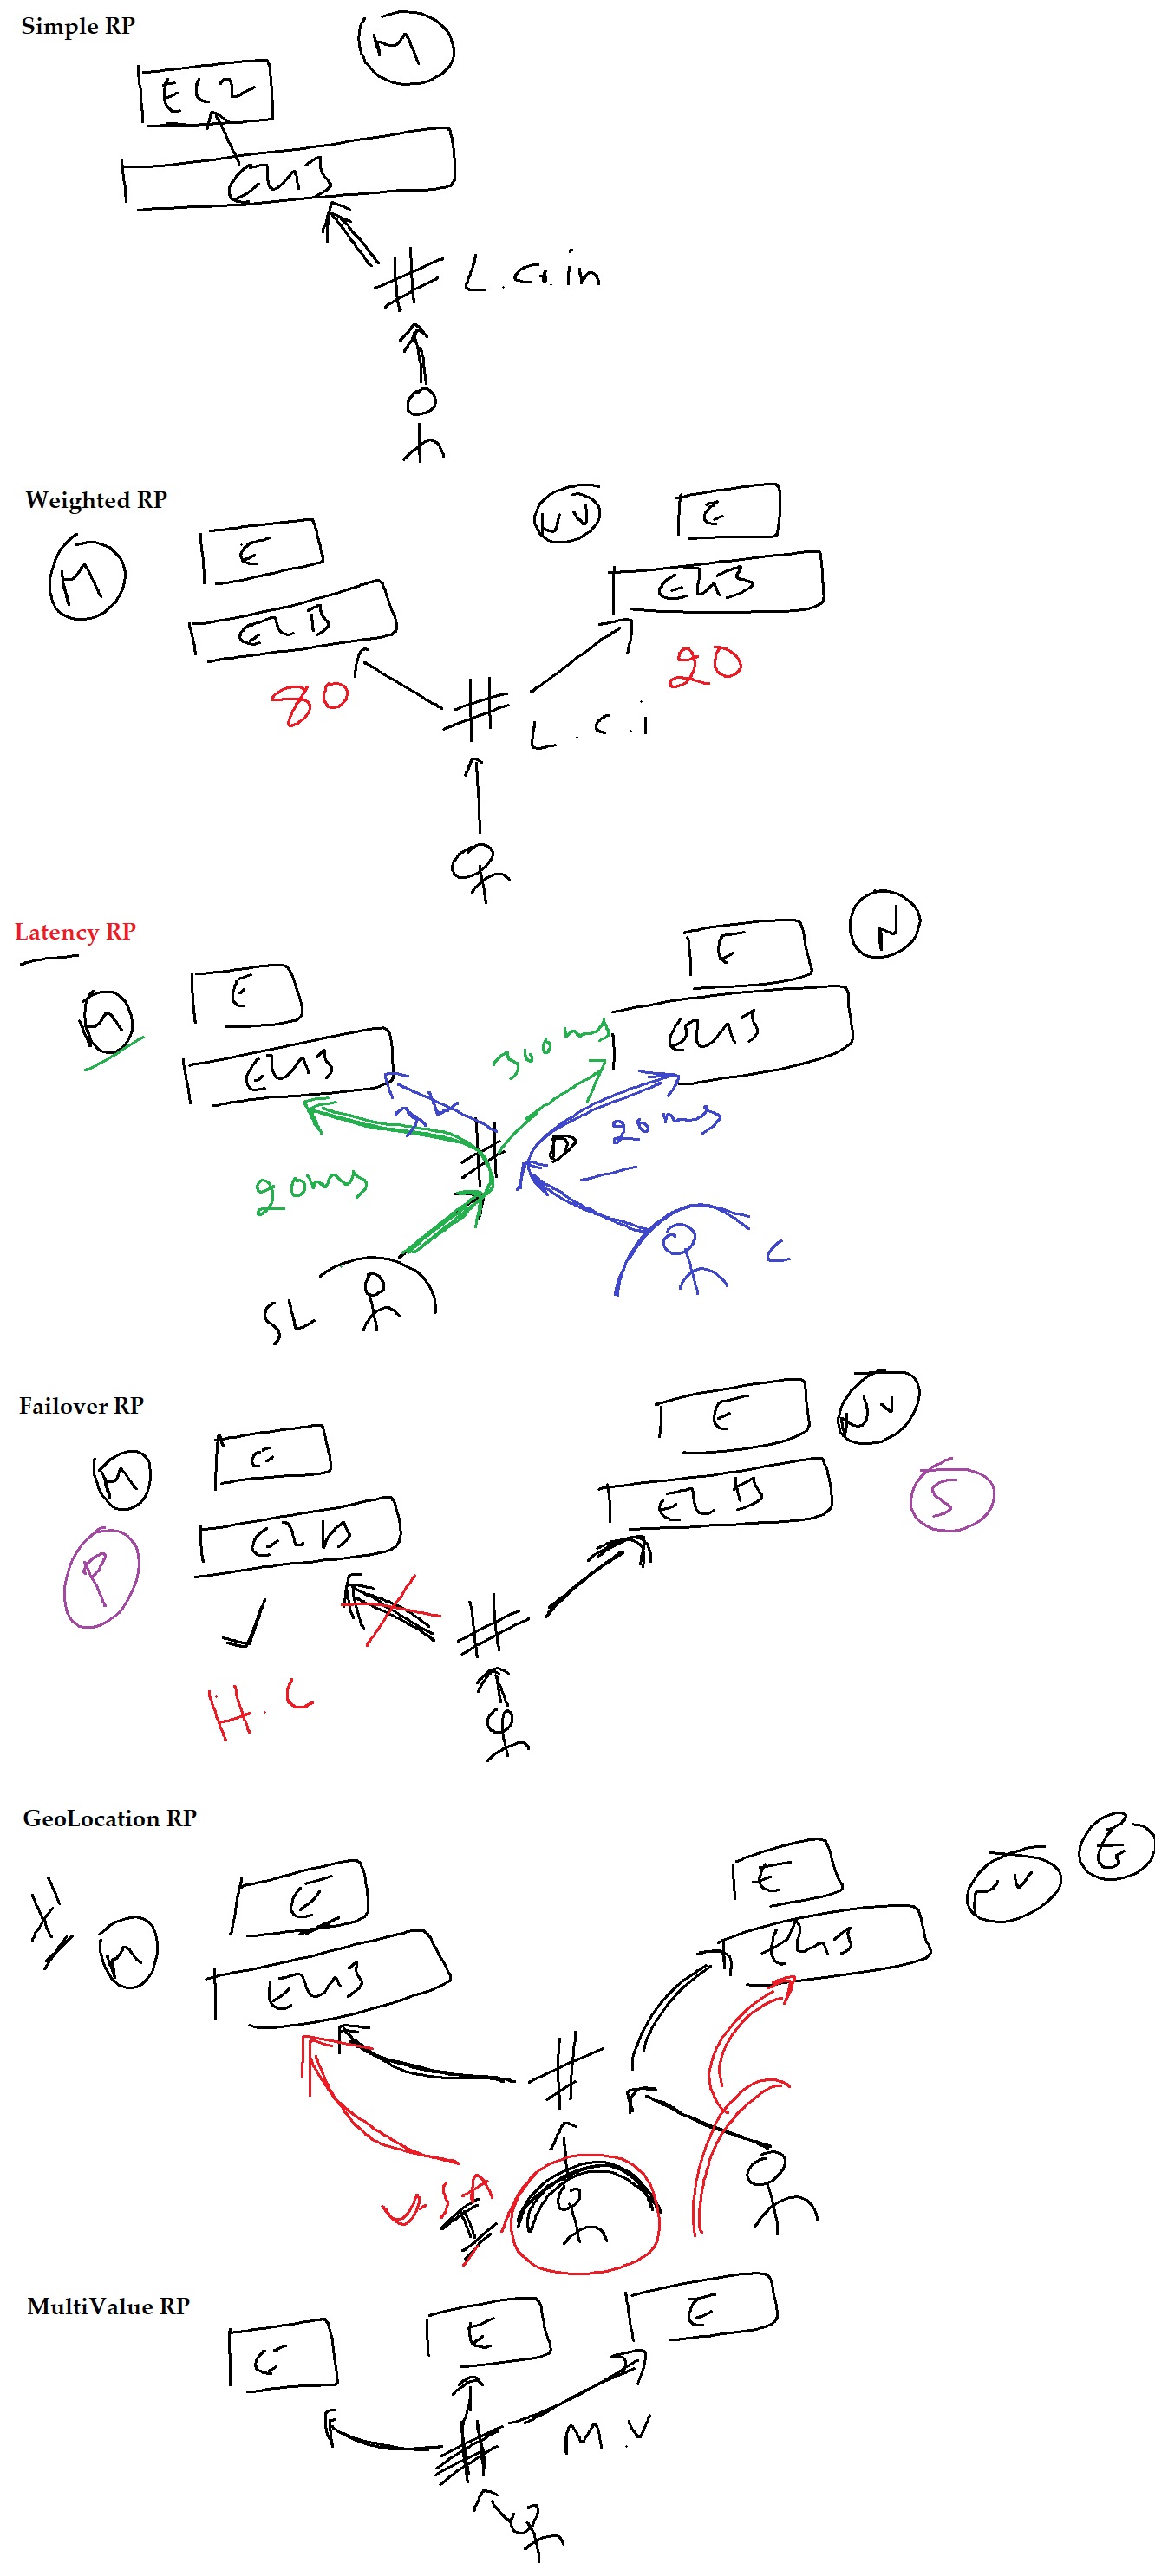 Simple RP
M
EC2
ELB
L.cr.in
Weighted RP
M
E
NV
E
ELB
ELB
80
20
L.C.i
Latency RP
M
E
E
N
ELB
ELB
300ms
20ms
20ms
SL
C
Failover RP
M
E
E
NV
ELB
ELB
P
S
H.C
GeoLocation RP
M
E
E
NV
E
ELB
ELB
USA
I
MultiValue RP
E
E
E
M.V